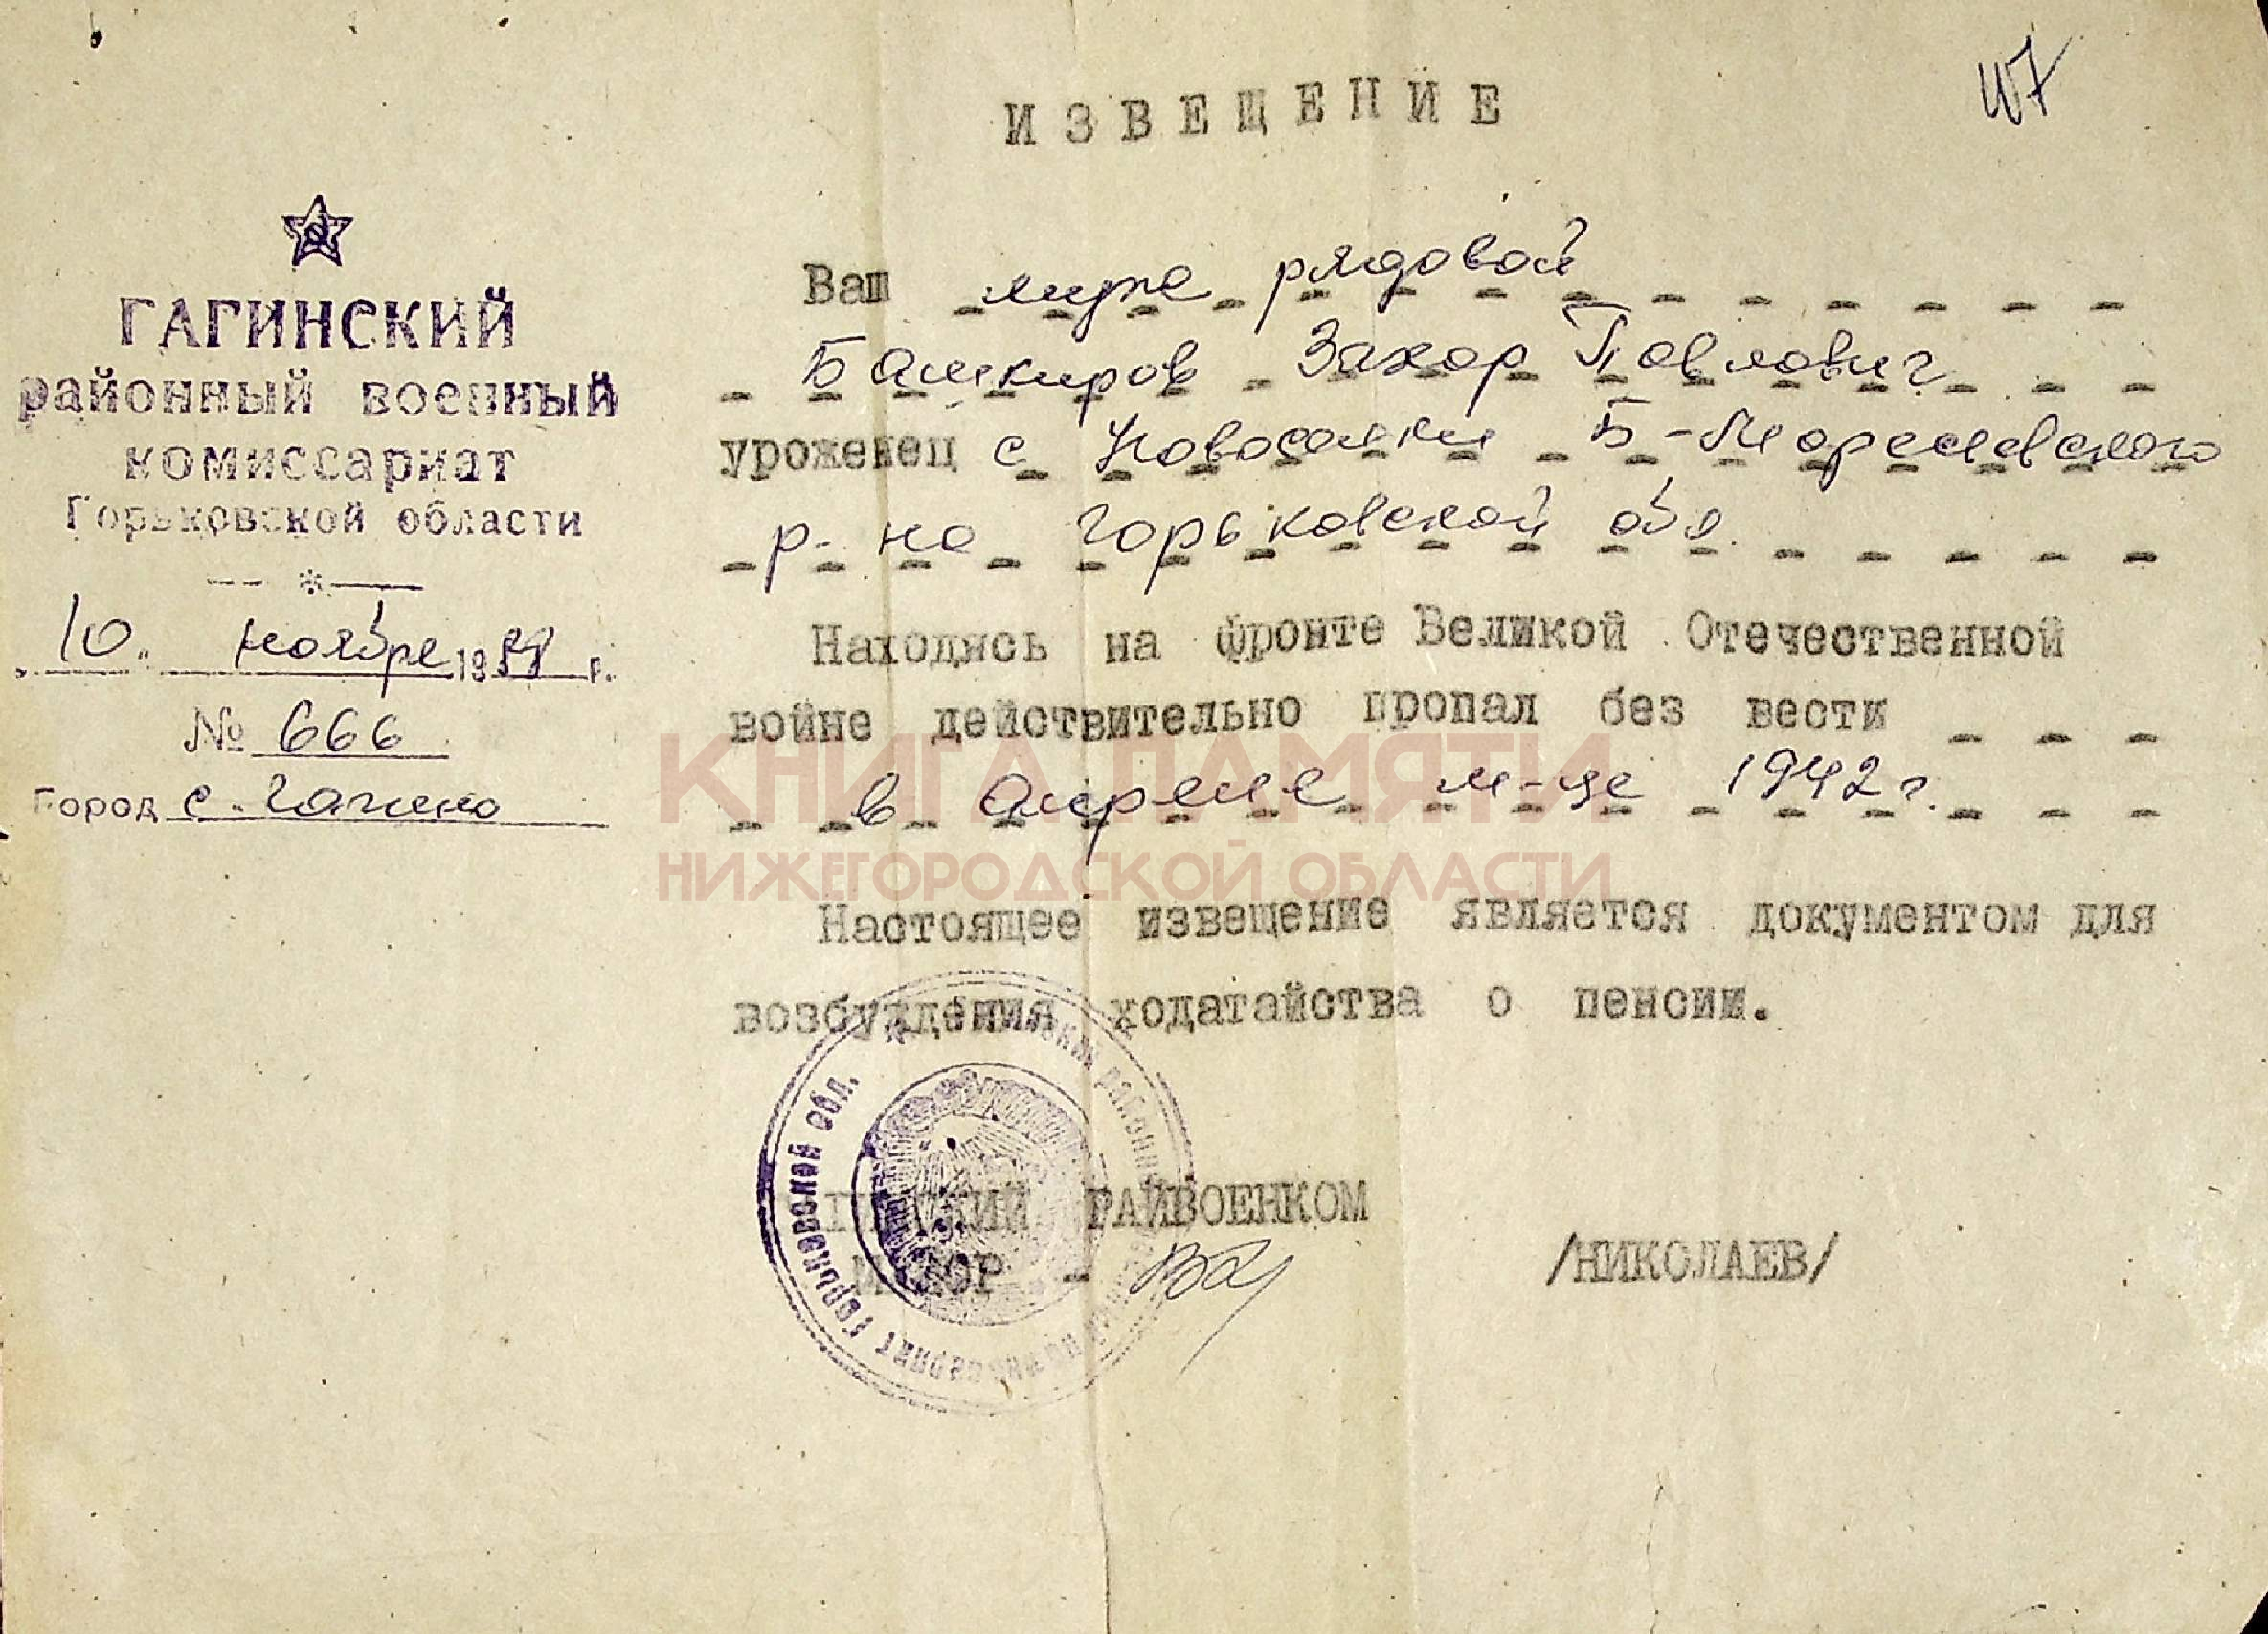 ИЗВЕЩЕНИЕ
ГАГИНСКИЙ
районный военный
комиссариат
Горьковской области
10 ноября 19 г.
№ 666
Город с. Гагино
Ваш муж рядовой
Башкиров Захар Павлович
уроженец с Новоселки Б-Маресевского
р-на Горьковской обл.
Находясь на фронте Великой Отечественной
войне действительно пропал без вести
в апреле м-це 1942 г.
КНИГА ПАМЯТИ
НИЖЕГОРОДСКОЙ ОБЛАСТИ
Настоящее извещение является документом для
возбуждения ходатайства о пенсии.
ГАГИНСКИЙ РАЙВОЕНКОМ
МАЙОР - /НИКОЛАЕВ/
районный военный комиссариат Горьковской обл.